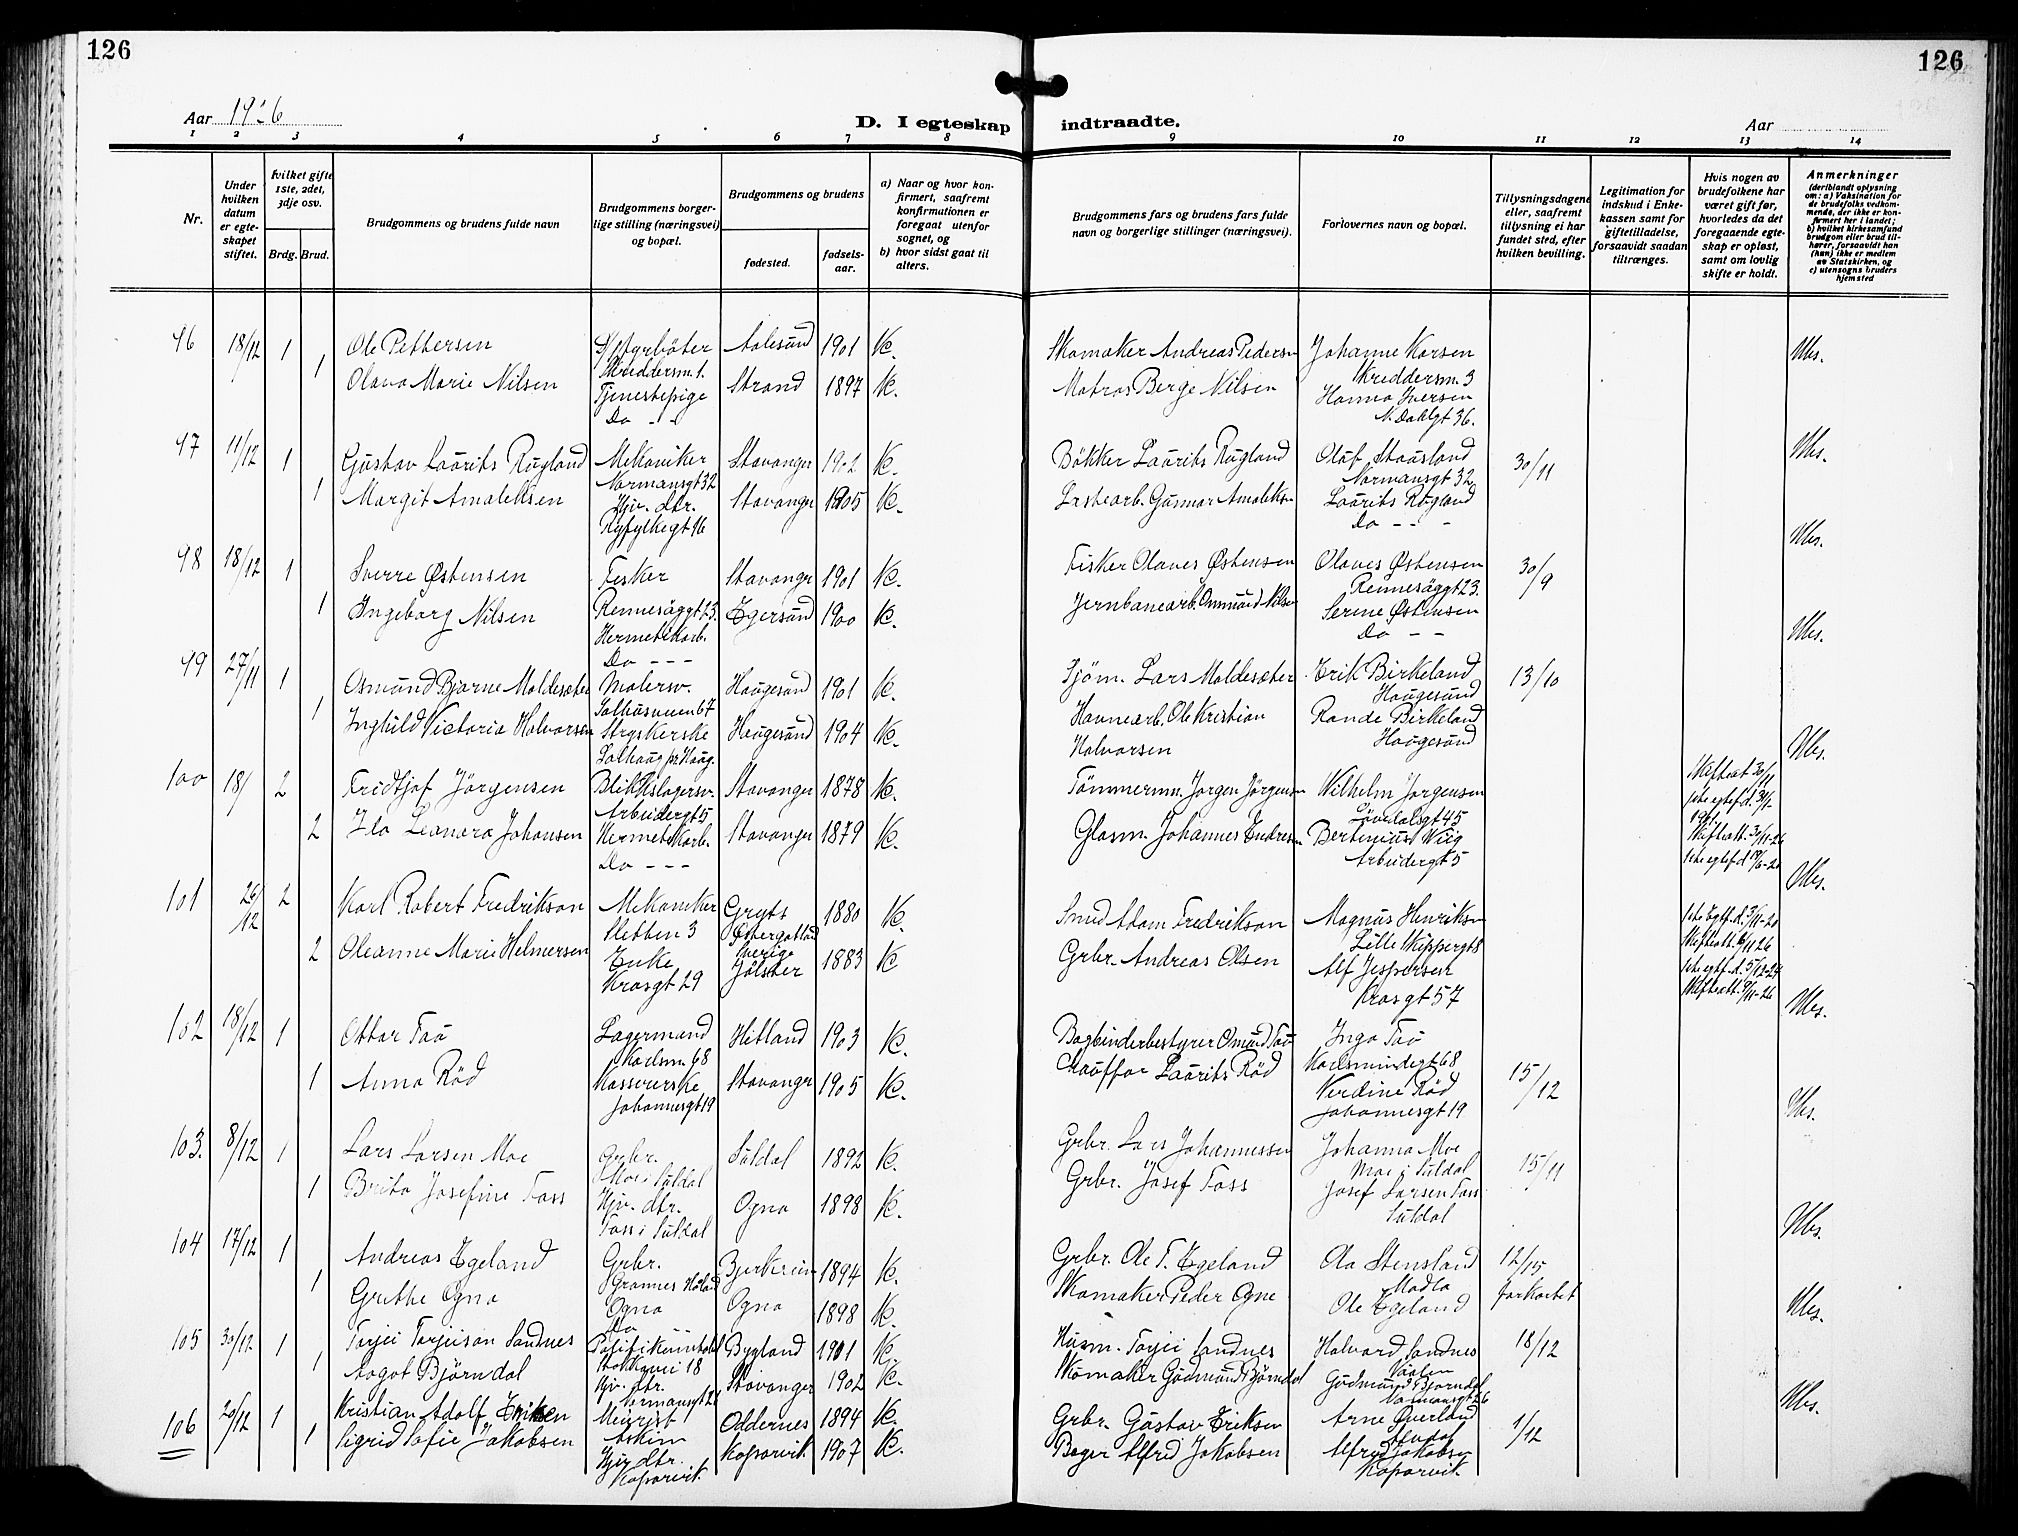 126
126
Aar 1926
D. I egteskap indtraadte.
Aar
1 2 3 4 5 6 7 8 9 10 11 12 13 14
Nr.
Under hvilken datum er egteskapet stiftet.
hvilket gifte 1ste, 2det, 3dje osv.
Brdg. Brud.
Brudgommens og brudens fulde navn
Brudgommens borgerlige stilling (næringsvei) og bopæl.
Brudgommens og brudens
fødested.
fødselsaar.
a) Naar og hvor konfirmert, saafremt konfirmationen er foregaat utenfor sognet, og
b) hvor sidst gaat til alters.
Brudgommens fars og brudens fars fulde navn og borgerlige stillinger (næringsvei).
Forlovernes navn og bopæl.
Tillysningsdagene eller, saafremt tillysning ei har fundet sted, efter hvilken bevilling.
Legitimation for indskud i Enkekassen samt for giftetilladelse, forsaavidt saadan tiltrænges.
Hvis nogen av brudefolkene har været gift før, hvorledes da det foregaaende egteskap er opløst, samt om lovlig skifte er holdt.
Anmerkninger
(deriblandt oplysning om: a) Vaksination for de brudefolks vedkommende, der ikke er konfirmert her i landet; b) hvilket kirkesamfund brudgom eller brud tilhører, forsaavidt han (hun) ikke er medlem av Statskirken, og c) utensogns bruders hjemsted
96 18/12 1 Ole Pettersen Fyrbøter Skreddersm. 1. Aalesund 1901 K. Skomaker Andreas Pedersen Johanne Karsen Skreddersm. 3
1 Olava Marie Nilsen Tjenestepige Do Strand 1897 K. Matros Berge Nilsen Hanna Iversen N. Dahlgt 36.
97 11/12 1 Gustav Laurits Rugland Mekaniker Normansgt 32 Stavanger 1902 K. Bøkker Laurits Rugland Olaf Stausland Normansgt 32 30/11
1 Margit Amaleksen Hjv. dtr. Ryfylkegt 16 Stavanger 1905 K. Gunnar Amaleksen Laurits Rugland Do
98 18/12 1 Sverre Østensen Fisker Rennesøygt 23. Stavanger 1901 K. Fisker Olaves Østensen Olaves Østensen Rennesøygt 23. 30/9
1 Ingeborg Nilsen Hermetikarb. Do Egersund 1900 K. Jernbanearb. Ommund Nilsen Serine Østensen Do
99 27/11 1 Osmund Bjarne Moldesæter Malersv. Salhusveien 67 Haugesund 1901 K. Sjøm. Lars Moldesæter Erik Birkeland Haugesund 13/10
1 Inghild Victoria Halvorsen Strykerske Haugesund 1904 K. Havnearb. Ole Kristian Halvorsen Rande Birkeland Haugesund
100 18/ 2 Fridtjof Jørgensen Blikkslagersv. Arbeidergt 5 Stavanger 1878 K. Tømmermn. Jørgen Jørgensen Wilhelm Jørgensen Løvdalsgt 45
2 Ila Leonora Johansen Hermetikkarb. Do Stavanger 1879 K. Glasm. Johannes Endresen Bertinius Wiig Arbeidergt 5
101 26/12 2 Karl Robert Fredrikson Mekaniker Sletten 3 Gryts Østergøtland Sverige 1880 K. Smed Adam Fredrikson Magnus Henriksen Lille Skippergt 8
2 Oleanne Marie Helmersen Enke Kragsgt 29 Jølster 1883 K Grbr. Andreas Olsen Alf Jespersen Kragsgt 57
102 18/12 1 Ottar Tau Lagermand Karlsm. 68 Hetland 1903 K. Bogbinderbestyrer Omund Tau Inga Tau Karlsmindegt 68
1 Anna Rød Kassererske Johannesgt 19 Stavanger 1905 K. Chauffør Laurits Rød Verdine Rød Johannesgt 19 15/12
103. 8/12 1 Lars Larsen Moe Grbr. Moe i Suldal Suldal 1892 K. Grbr. Lars Johannessen Johanna Moe Moe i Suldal 15/11
1 Brita Josefine Foss Hjv. dtr. Foss i Suldal Ogna 1898 K. Grbr. Josef Foss Josef Larsen Foss Suldal
104 17/12 1 Andreas Egeland Grbr. Bjerkreim 1894 K. Grbr. Ole T. Egeland Ola Stensland Madla 12/15 forkortet
1 Grethe Ogna Ogna Do Ogna 1898 K. Skomaker Peder Ogne Ole Egeland
105 30/12 1 Torjei Torjeison Sandnes Stokkavei 18 Bygland 1901 K. Husm. Torjei Sandnes Halvard Sandnes 18/12
1 Aagot Bjørndal Hjv. dtr. Stavanger 1902 K. Skomaker Gudmund Bjørndal Gudmund Bjørndal Normansgt 26
106 20/12 1 Kristian Adolf Eriksen Meierist Askim Oddernes 1894 K. Grbr. Gustav Eriksen Arne Øverland 1/12
1 Sigrid Sofie Jakobsen Hjv. dtr. Kopervik Kopervik 1907 K. Bager Alfred Jakobsen Alfred Jakobsen Kopervik